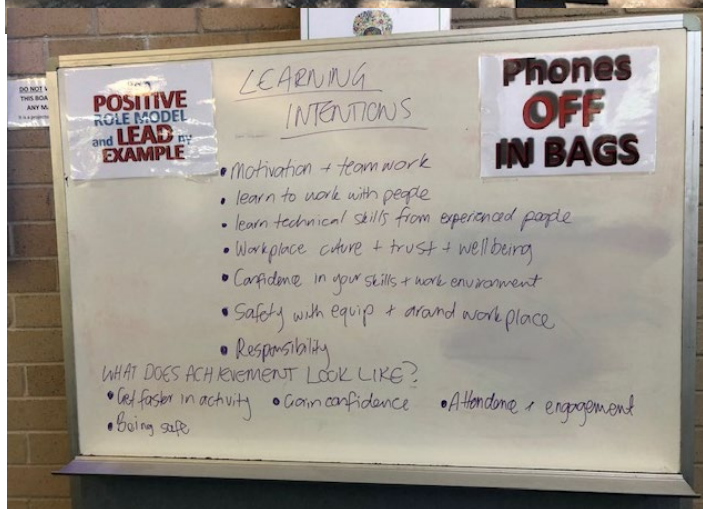 DO NOT
THIS BOA
ANY MA
POSITIVE
ROLE MODEL
and LEAD by
EXAMPLE
LEARNING
INTENTIONS
Phones
OFF
IN BAGS
• Motivation + teamwork
• learn to work with people
• learn technical skills from experienced people
• Workplace culture + trust + wellbeing
• Confidence in your skills + work environment
• Safety with equip + around workplace
• Responsibility
WHAT DOES ACHIEVEMENT LOOK LIKE?
• Get faster in activity • Gain confidence • Attendance + engagement
• Being safe